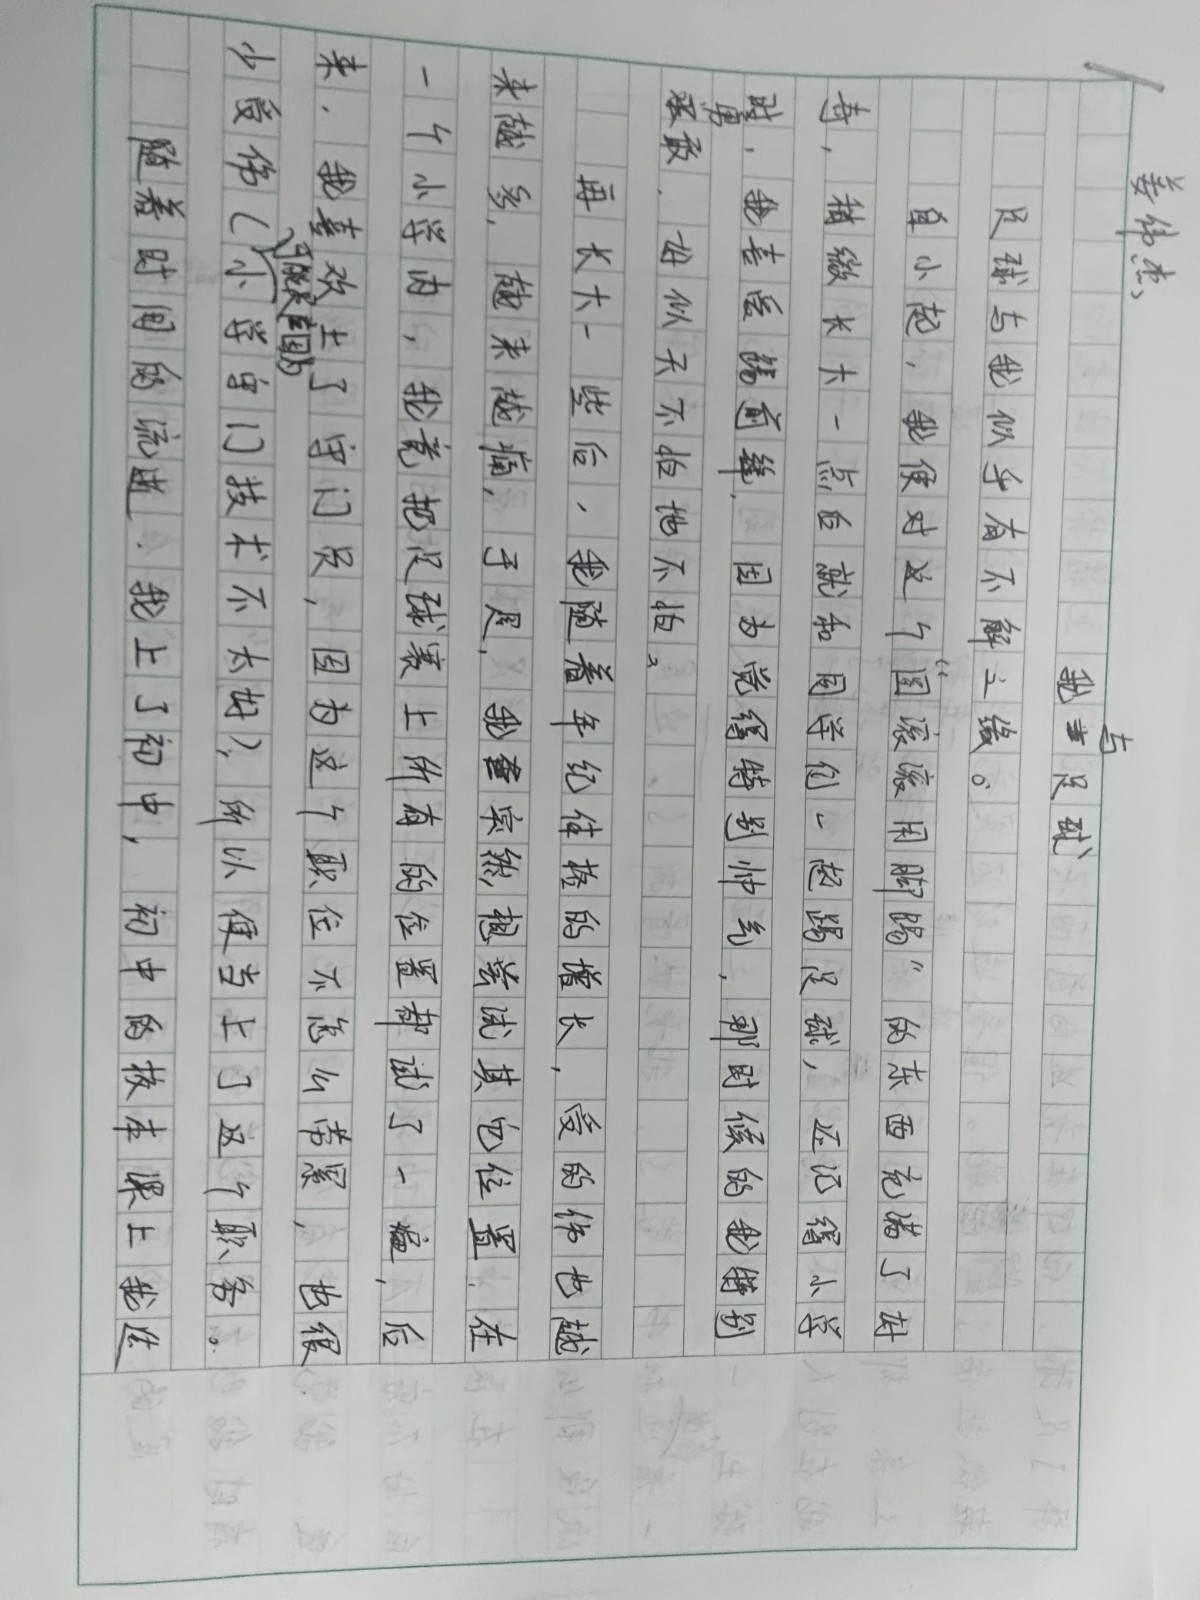 姜伟杰
我与足球
足球与我似乎有不解之缘。
自小起，我便对这个“圆滚滚用脚踢”的东西充满了好
奇，稍微长大一点后就和同学们一起踢足球，还记得小学
时，我喜爱踢前锋，因为觉得特别帅气，那时候的我特别
勇敢，好似天不怕地不怕。
再长大一些后，我随着年纪住楼的增长，受的伤也越
来越多，越来越痛，于是，我突然想尝试其它位置，在
一个小学内，我竟把足球赛上所有的位置都试了一遍，后
来，我喜欢上了守门员，因为这个职位不怎么劳累，也很
少受伤（可能是因为小学守门技术不太好），所以便当上了这个职务。
随着时间的流逝，我上了初中，初中的校本课上我选